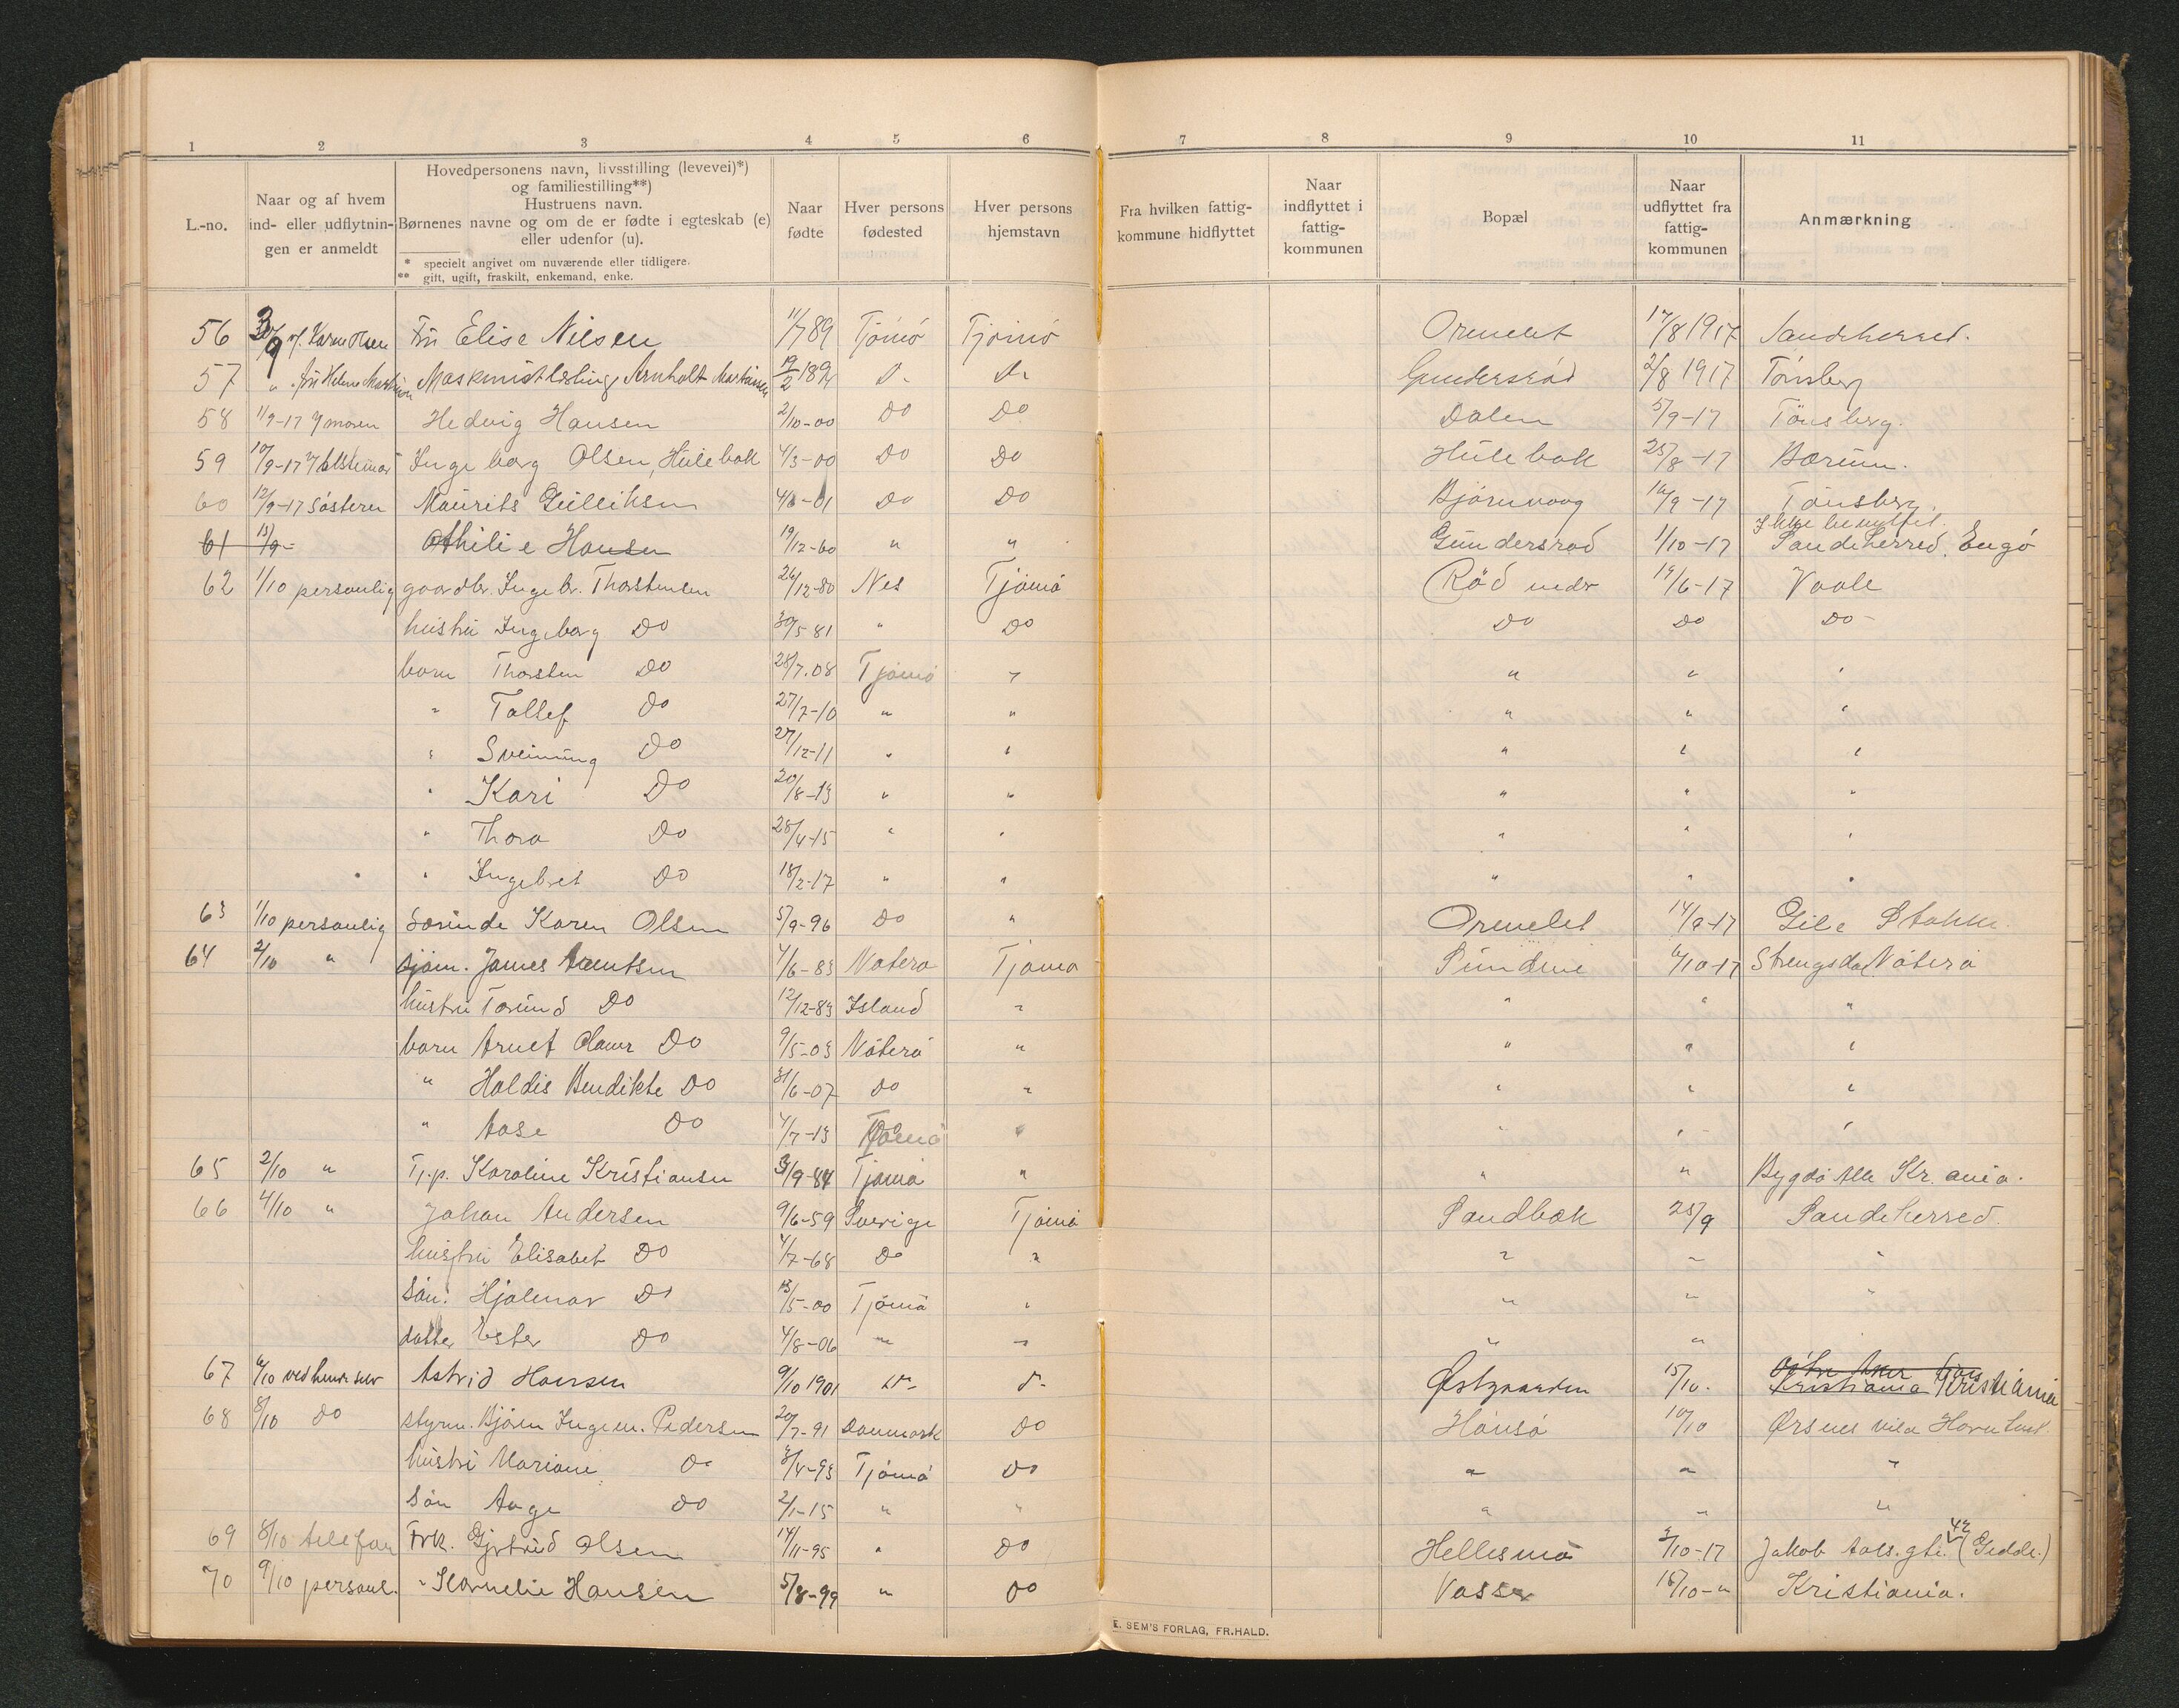 1 2 3 4 5 6 7 8 9 10 11
L.-no.
Naar og af hvem ind- eller udflytningen er anmeldt
Hovedpersonens navn, livsstilling (levevei)*)
og familiestilling**)
Hustruens navn.
Børnenes navne og om de er fødte i egteskab (e)
eller udenfor (u).
* specielt angivet om nuværende eller tidligere.
** gift, ugift, fraskilt, enkemand, enke.
Naar fødte
Hver persons fødested
Hver persons hjemstavn
Fra hvilken fattigkommune hidflyttet
Naar indflyttet i fattigkommunen
Bopæl
Naar udflyttet fra fattigkommunen
Anmærkning
56 Karen Olsen Elise Nilsen 11/7 89 Tjömö Tjömö Ormelet 17/8 1917 Sandeherred.
57 " Helene Arnholt Martinsen 19/2 189 Do Do Gundersröd 2/8 1917 Tönsberg
58 1/9-17 Hedvig Hansen 2/10-00 Do Do Dalen 5/9-17 Tönsberg.
59 10/9-17 Ingeborg Olsen, Hülebak 4/3-00 Do Do Hülebak 25/8-17 Bærum.
60 12/9-17 Söstern Maurits Gulliksen -01 Do Do Björnvaag 10/9-17 Tönsberg.
61 13/9- Othilie Hansen 19/12-60 " " Gundersrød 1/10-17 Ikke benyttet. Sandeherred. Engö
62 1/10 personlig gaardbr. Ingebr. Thorstensen 26/12-80 Nes Tjömö Röd nedr 14/6-17 Vaale
hustru Ingeborg Do 30/5 81 " Do Do Do Do
barn Thorsten Do 28/7.08 Tjömö " " " "
" Tallef Do 27/7-10 " " " " "
" Sveinung Do 27/12-11 " " " " "
" Kari Do 20/8-13 " " " " "
" Thora Do 28/4-15 " " " " "
" Ingebret Do 18/2-17 " " " " "
63 1/10 personlig Karen Olsen 5/9-96 Do " Ormelet 14/9-17 Stokke
64 2/10 " sjöm. James Arentsen 4/6-83 Nøterø Tjömö Sundene 6/10-17 Nöterö
hustru Do 12/12-83 Island " " " "
barn Arnet Do 9/5-03 Nöterö " " " "
" Haldis Bendikte Do 31/6-07 Do " " " "
" Aase Do 4/7-13 Tjömö " " " "
65 2/10 " Tj.p. Karoline Kristiansen 3/9-84 Tjömö " " " Bygdö Alle Kr.ania.
66 4/10 " Johan Andersen 9/6-59 Sverige Tjömö Sandbæk 25/9 Sandeherred.
hustru Elisabet Do 4/7-68 Do " " " "
Sön. Hjalmar Do 13/5-00 Tjömö " " " "
datter Ester Do 4/8-06 " " " "
67 6/10 ved Astrid Hansen 9/10 1901 Do Do Østgaarden 15/10. Østre Aker Kristiania Kristiania
68 8/10 Do styrm. Björn Ingem. Pedersen 20/7-91 Danmark Do Hönsö 10/10 Ørsnes
hustru Mariane Do 3/4-93 Tjömö Do " " "
Sön Aage Do 2/1-15 " " " " "
69 8/10 telefon Frk. Gjertrud Olsen 14/11-95 " Do Hellesmo 3/10-17 Jakob Aals.gte. 42
70 9/10 personl. " Kornelie Hansen 5/8-99 " Do Vasser 16/10-" Kristiania.
E. SEM'S FORLAG, FR.HALD.